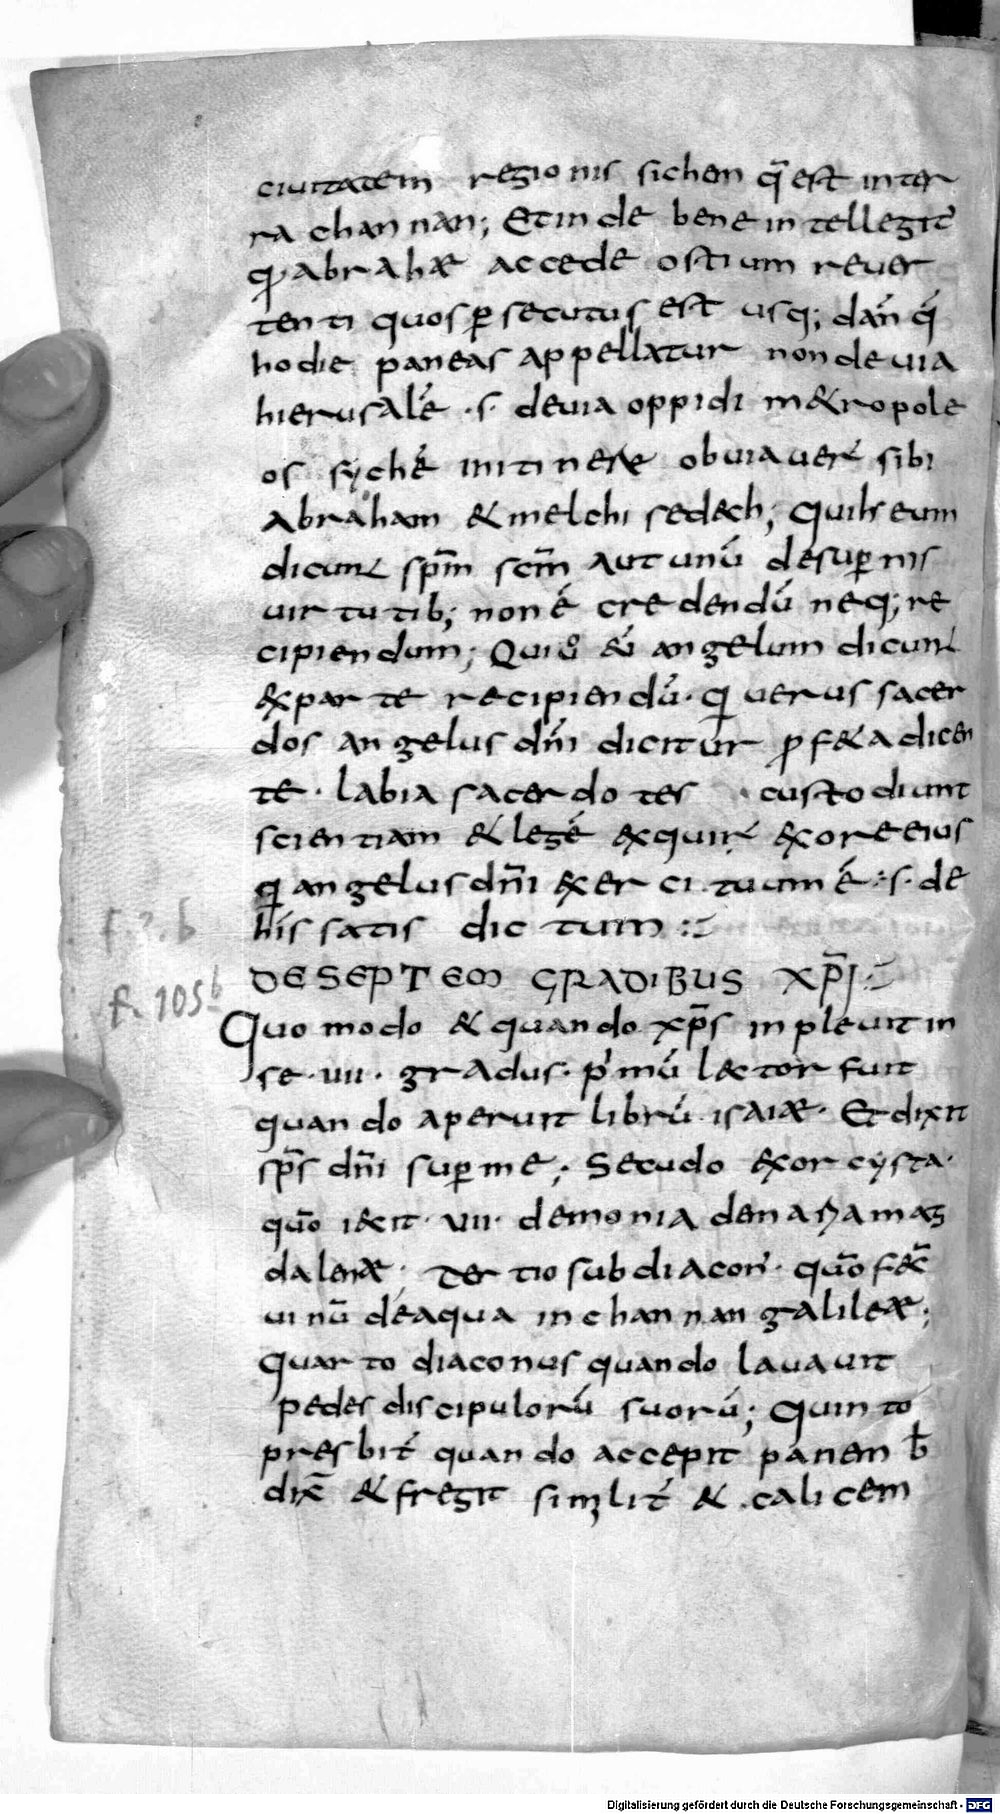 ciuitatem regionis sichen q̄ est inter
ra channan; Et inde bene intellegit̄
qͥ abrahæ accede ostium reuer
tenti quos ꝑsecutus est usq; dań q́
hodie paneas appellatur non de uia
hierusalḗ .s. deuia oppidi m&ropole
os sychḗ in itinere obuiauer̄ sibi
abraham & melchisedech; Qui hs eum
dicun̄ sp̄m sc̄m aut unū de suꝑnis
uirtutib; non ḗ credendū neq; re
cipiendum; Qui u͛ eū angelum dicun̄
ex parte recipiendū. qͥ uerus sacer
dos angelus dn̄i dicitur ꝓf&a dicen
te. labia sacerdotes custodiunt
scientiam & legē exquir̄ ex ore eius
qͥ angelus dn̄i exercituum ē .s. de
his satis dictum
DE SEPTEM GRADIBUS XP̄I
Quomodo & quando xp̄s inpleuit in
se .uii. gradus. pͥmū lector fuit
quando aperuit librū isaiæ. Et dixit
sp̄s dn̄i suꝑ me; Secudo exorcysta.
qun̄o iecit .uii. demonia de maria mag
dalenæ. Tertio subdiacon̄. qun̄o fec̄
uinū de aqua in channan galileæ;
Quarto diaconus quando lauauit
pedes discipulorū suorū; Quinto
presbit̄ quando accepit panem b̄
dix̄ & fregit simlit̄ & calicem
f. 3. b
f. 105b
Digitalisierung gefördert durch die Deutsche Forschungsgemeinschaft - DFG